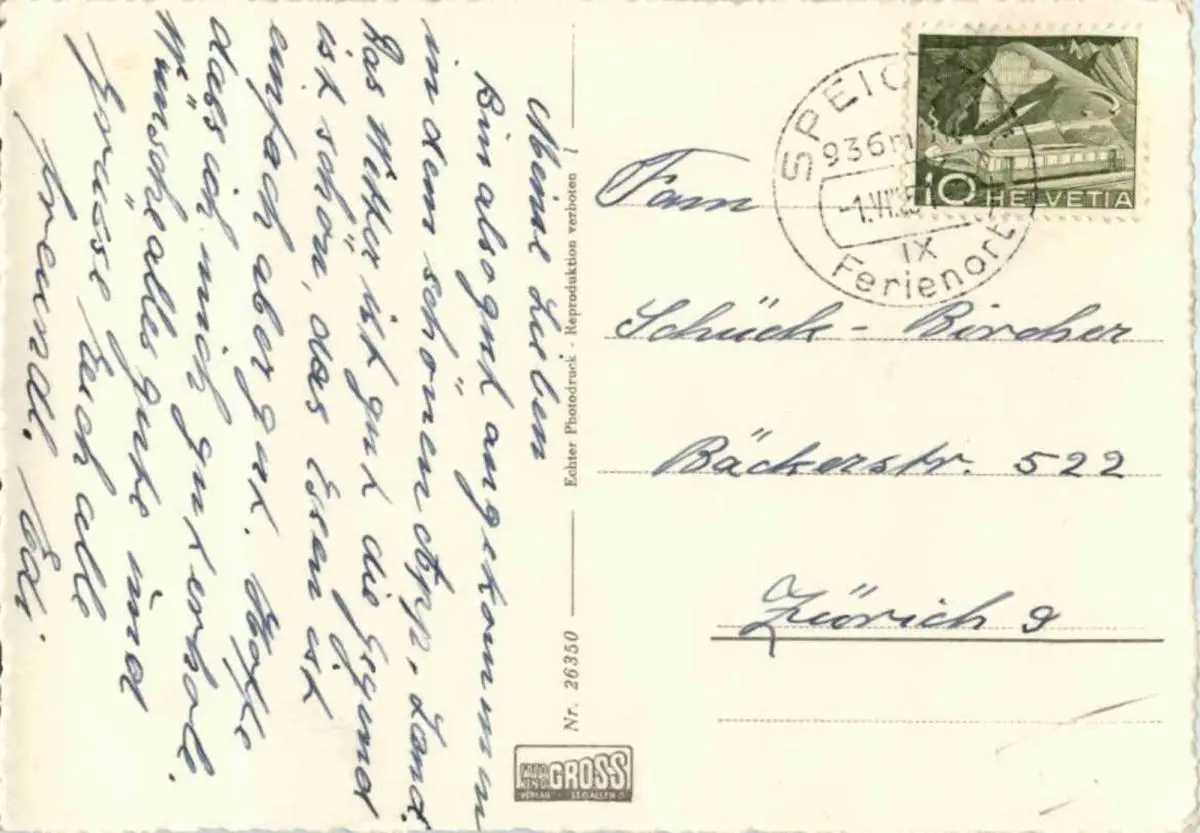 Meine Lieben
Bin also gut angekommen
in dem schönen App. Land.
Das Wetter ist gut die Gegend
ist schön, das Essen ist
einfach aber gut. Hoffe
dass ich mich gut erhole.
Wünsche alles gute und
Grüsse Euch alle
freundl. Edi.
Echter Photodruck - Reproduktion verboten !
Nr. 26350
GROSS
VERLAG ST. GALLEN
SPEIC
936m
-1.VII.5
IX
Ferienort
10 HELVETIA
Fam
Schück - Bircher
Bäckerstr. 522
Zürich 9